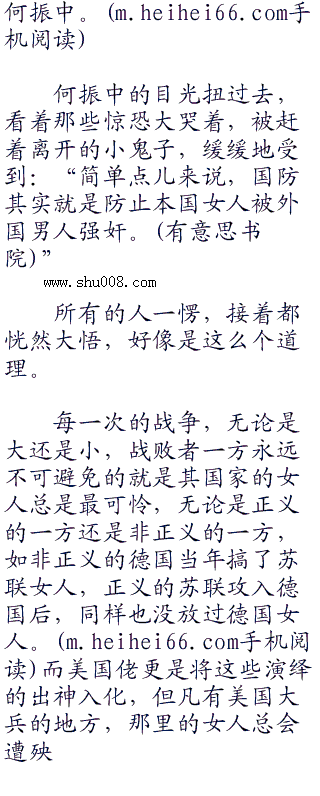 何振中。(m.heihei66.com手
机阅读)
何振中的目光扭过去，
看着那些惊恐大哭着，被赶
着离开的小鬼子，缓缓地受
到：“简单点儿来说，国防
其实就是防止本国女人被外
国男人强奸。(有意思书
院)”
www.shu008.com
所有的人一愣，接着都
恍然大悟，好像是这么个道
理。
每一次的战争，无论是
大还是小，战败者一方永远
不可避免的就是其国家的女
人总是最可怜，无论是正义
的一方还是非正义的一方，
如非正义的德国当年搞了苏
联女人，正义的苏联攻入德
国后，同样也没放过德国女
人。(m.heihei66.com手机阅
读)而美国佬更是将这些演绎
的出神入化，但凡有美国大
兵的地方，那里的女人总会
遭殃